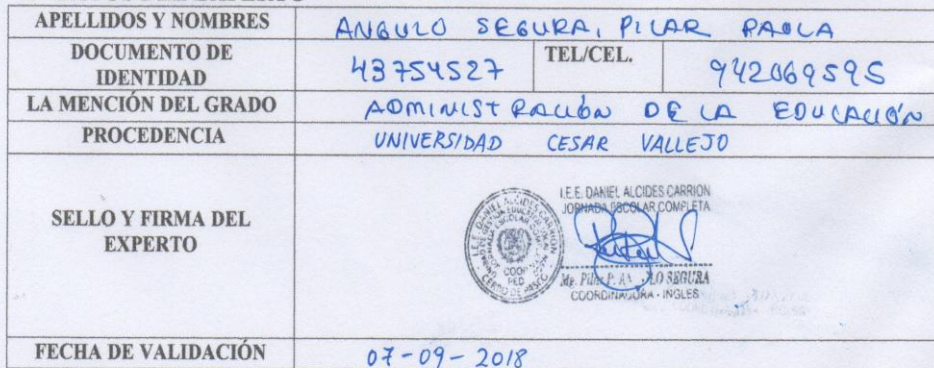 APELLIDOS Y NOMBRES ANGULO SEGURA, PILAR PAOLA
DOCUMENTO DE IDENTIDAD 43754527 TEL/CEL. 942069595
LA MENCIÓN DEL GRADO ADMINISTRACIÓN DE LA EDUCACIÓN
PROCEDENCIA UNIVERSIDAD CESAR VALLEJO
SELLO Y FIRMA DEL
EXPERTO
I.E.E. DANIEL ALCIDES CARRION
JORNADA ESCOLAR COMPLETA
SEGURA
COORDINADORA - INGLES
FECHA DE VALIDACIÓN 07-09-2018